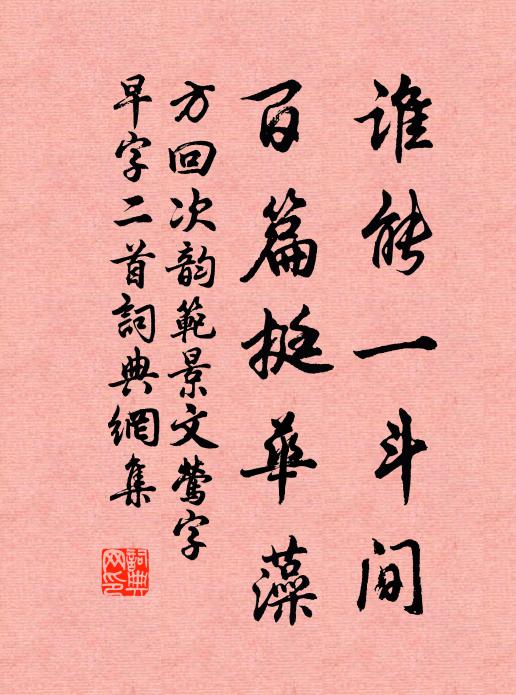 谁能一斗间
百篇挺华藻
方回次韵範景文莺字
早字二首詞典網集
詞典網印